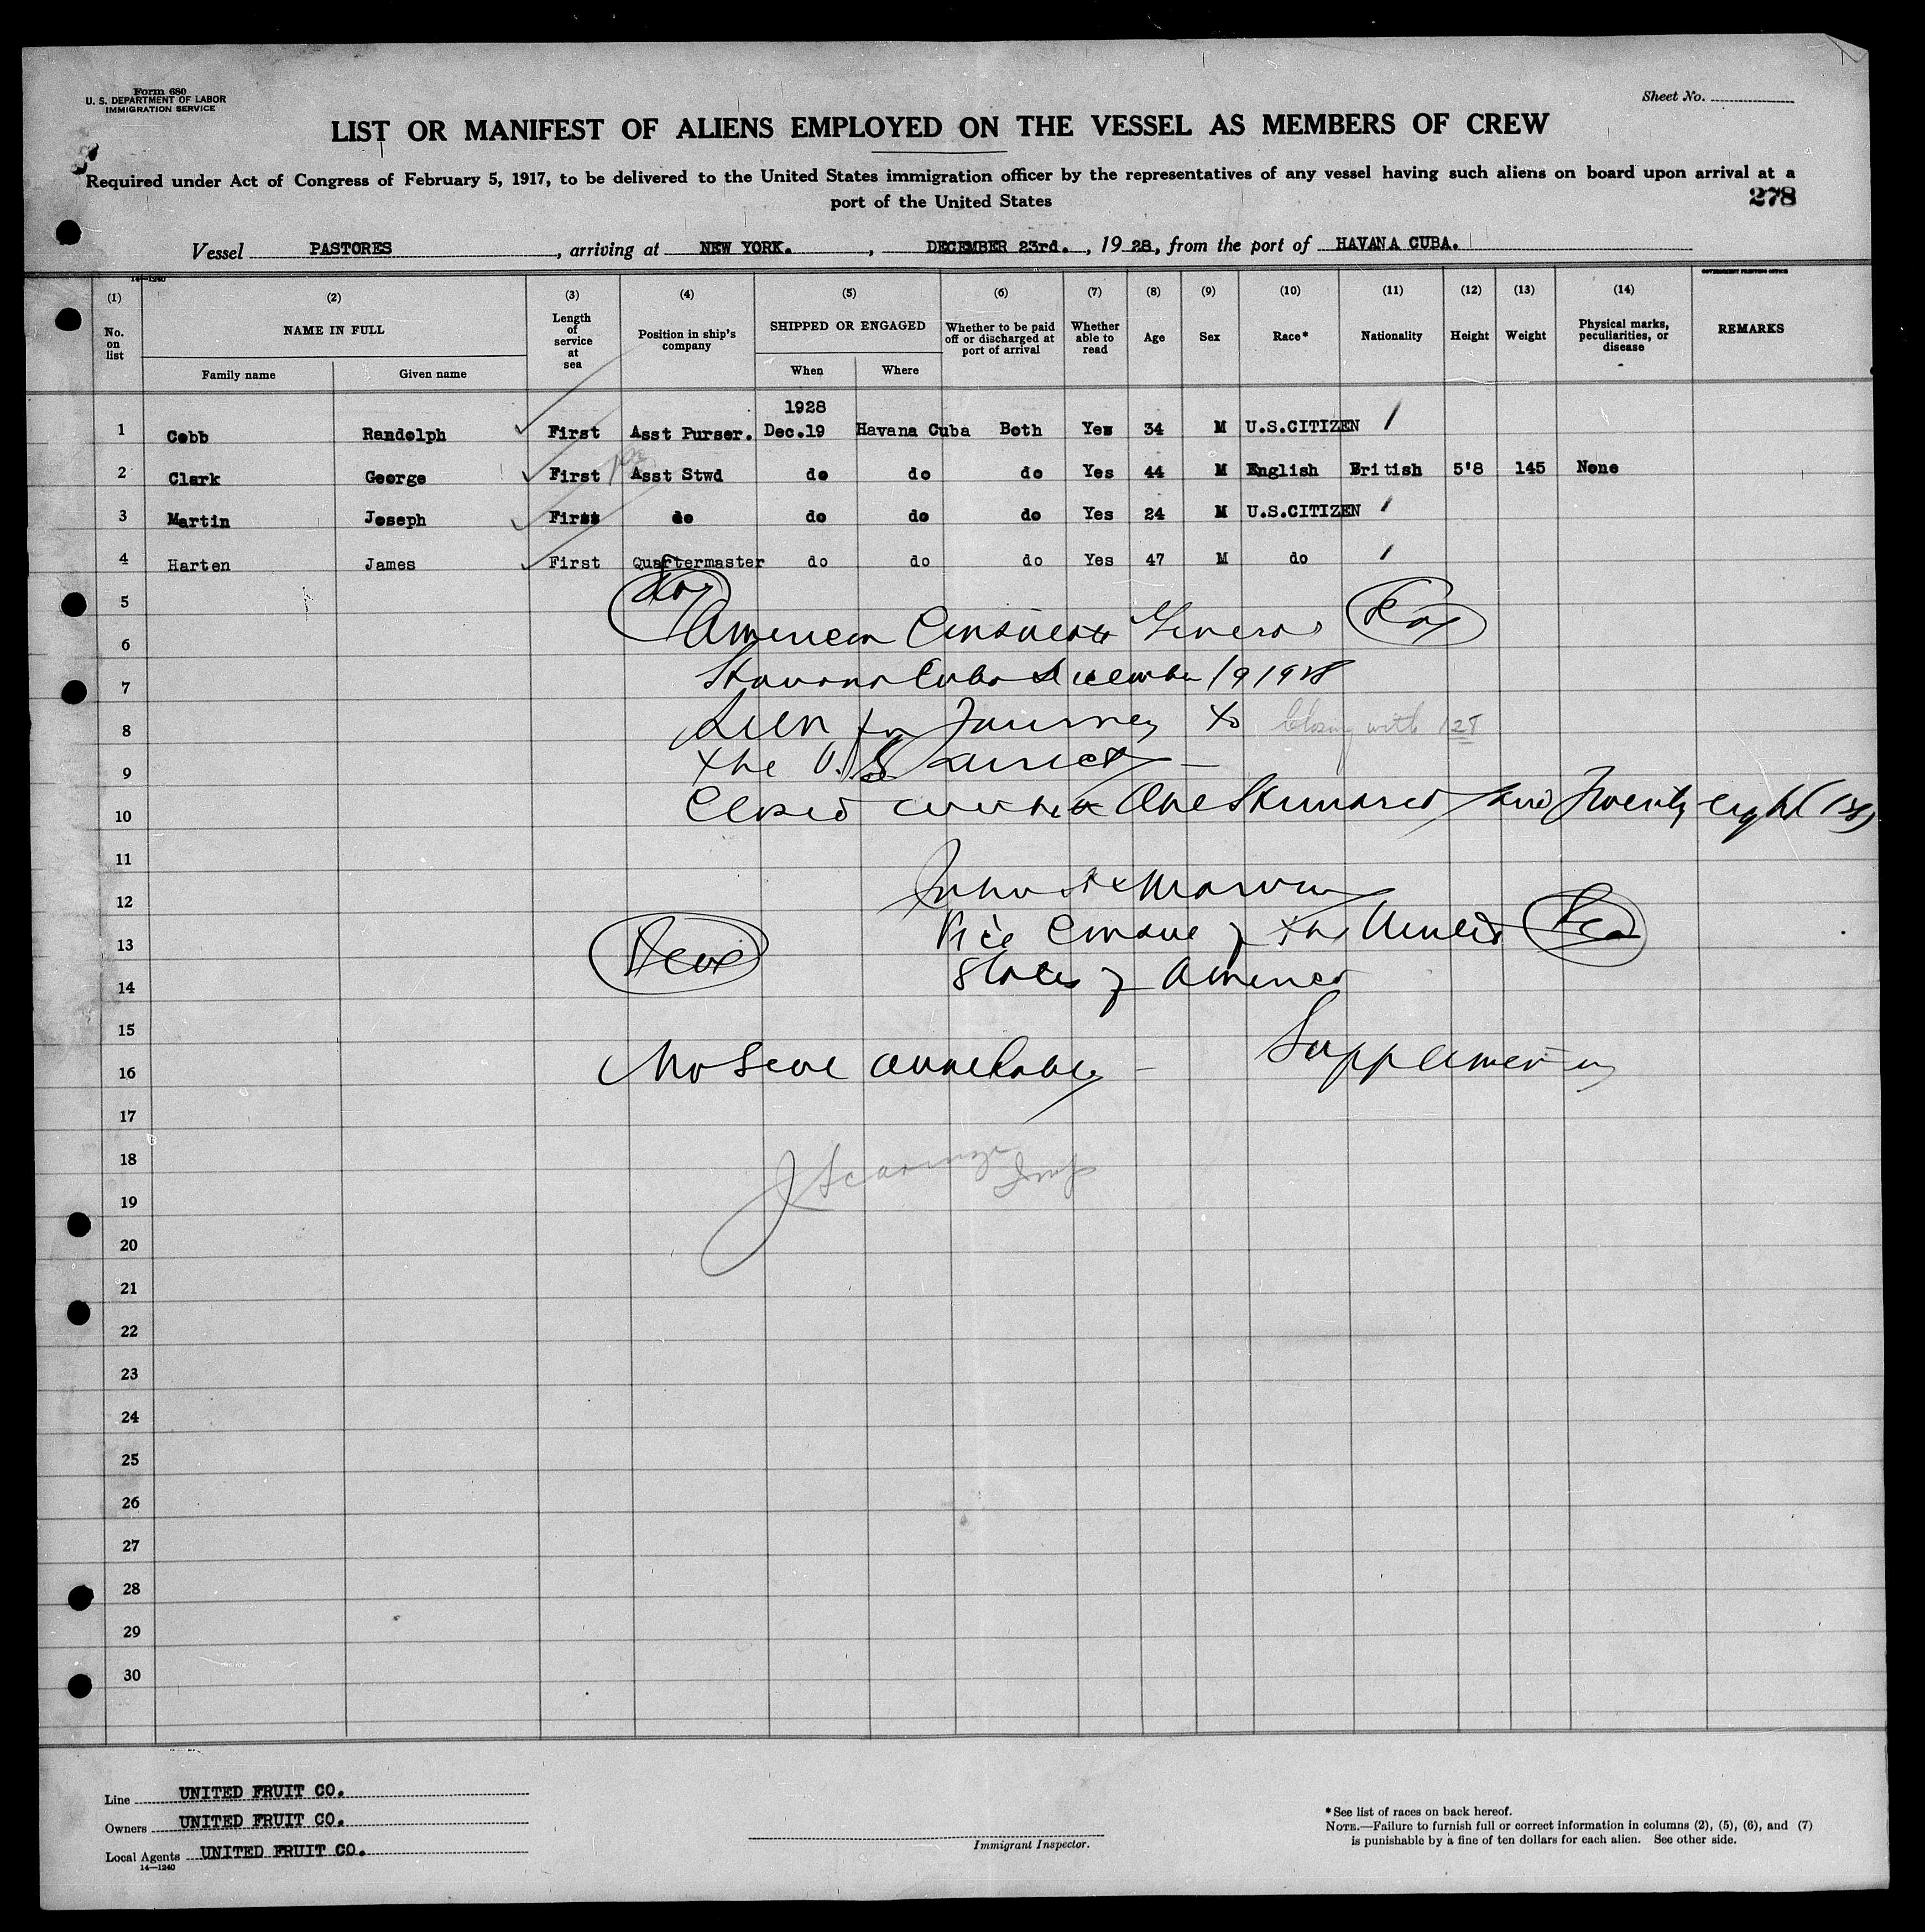 Form 680
U. S. DEPARTMENT OF LABOR
IMMIGRATION SERVICE
Sheet No.
LIST OR MANIFEST OF ALIENS EMPLOYED ON THE VESSEL AS MEMBERS OF CREW
Required under Act of Congress of February 5, 1917, to be delivered to the United States immigration officer by the representatives of any vessel having such aliens on board upon arrival at a
port of the United States
278
Vessel PASTORES, arriving at NEW YORK., DECEMBER 23rd., 1928, from the port of HAVANA CUBA.
14—1240
GOVERNMENT PRINTING OFFICE
(1) (2) (3) (4) (5) (6) (7) (8) (9) (10) (11) (12) (13) (14)
No. on list NAME IN FULL Length of service at sea Position in ship's company SHIPPED OR ENGAGED Whether to be paid off or discharged at port of arrival Whether able to read Age Sex Race* Nationality Height Weight Physical marks, peculiarities, or disease REMARKS
Family name Given name When Where
1928
1 Cobb Randolph First Asst Purser. Dec.19 Havana Cuba Both Yes 34 M U.S.CITIZEN
2 Clark George First Asst Stwd do do do Yes 44 M English British 5'8 145 None
3 Martin Joseph First do do do do Yes 24 M U.S.CITIZEN
4 Harten James First Quartermaster do do do Yes 47 M do
5
6 American Consulate General
7 Havana Cuba December 19 1928
8 Seen for Journey to Closing with 128
9 the U.S. America
10 Closed with One Hundred and Twenty eight (128)
11
12
13 Vice Consul of the United
14 States of America
Seal
15
16 No Seal available Supplementary
17
18
19
20
21
22
23
24
25
26
27
28
29
30
Line UNITED FRUIT CO.
Owners UNITED FRUIT CO.
Local Agents UNITED FRUIT CO.
14—1240
Immigrant Inspector.
*See list of races on back hereof.
NOTE.—Failure to furnish full or correct information in columns (2), (5), (6), and (7)
is punishable by a fine of ten dollars for each alien. See other side.